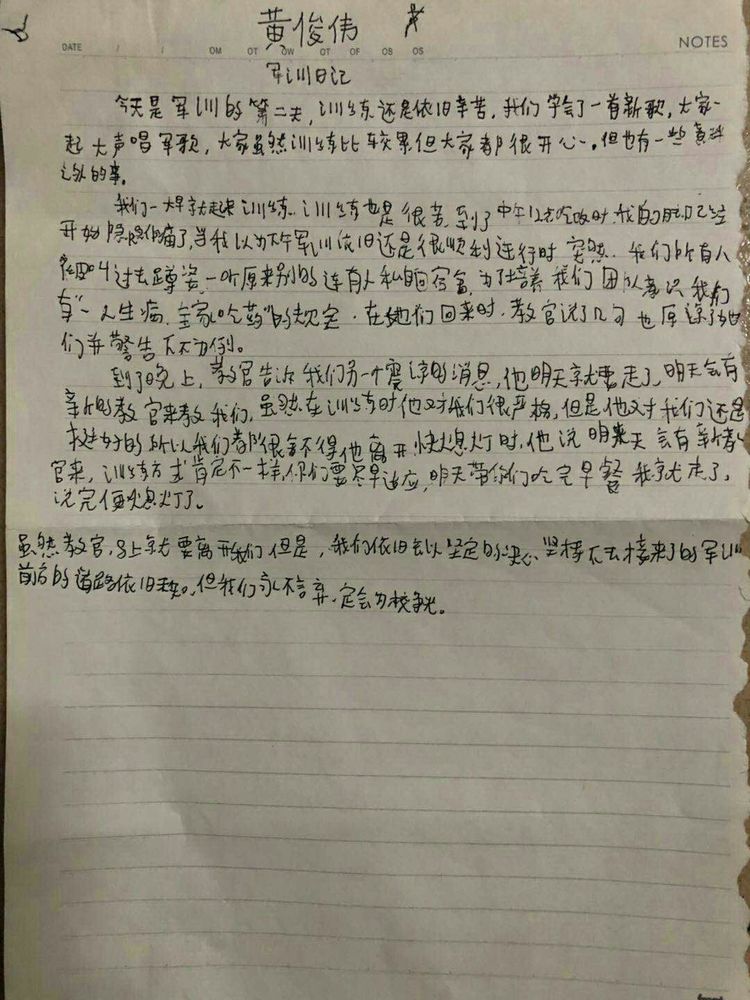 黄俊伟
DATE / / MO TU WE TH FR SA SU
NOTES
军训日记
今天是军训的第二天,训练还是依旧辛苦,我们学会了一首新歌,大家一
起大声唱军歌,大家虽然训练比较累但大家都很开心。但也有一些意料
之外的事。
我们一大早就起来训练,训练也是很苦,到了中午12点吃饭时,我的肚子已经
开始隐隐作痛了,当我以为下午军训依旧还是很顺利进行时,突然,我们所有人
被叫过去蹲姿,一听原来别的连有人私自回宿舍,为了培养我们团队意识我们
有“一人生病,全家吃药”的规定,在她们回来时,教官说了几句也原谅了她
们并警告下不为例。
到了晚上,教官告诉我们另一个震惊的消息,他明天就要走了,明天会有
新的教官来教我们,虽然在训练时他对我们很严格,但是他对我们还是
挺好的所以我们都很舍不得他离开,快熄灯时,他说明天会有新教
官来,训练方式肯定不一样,你们要尽早适应,明天带你们吃完早餐我就走了,
说完便熄灯了。
虽然教官马上就要离开我们但是,我们依旧会以坚定的决心坚持下去接来下的军训
前方的道路依旧未知,但我们永不言弃,定会为校争光。